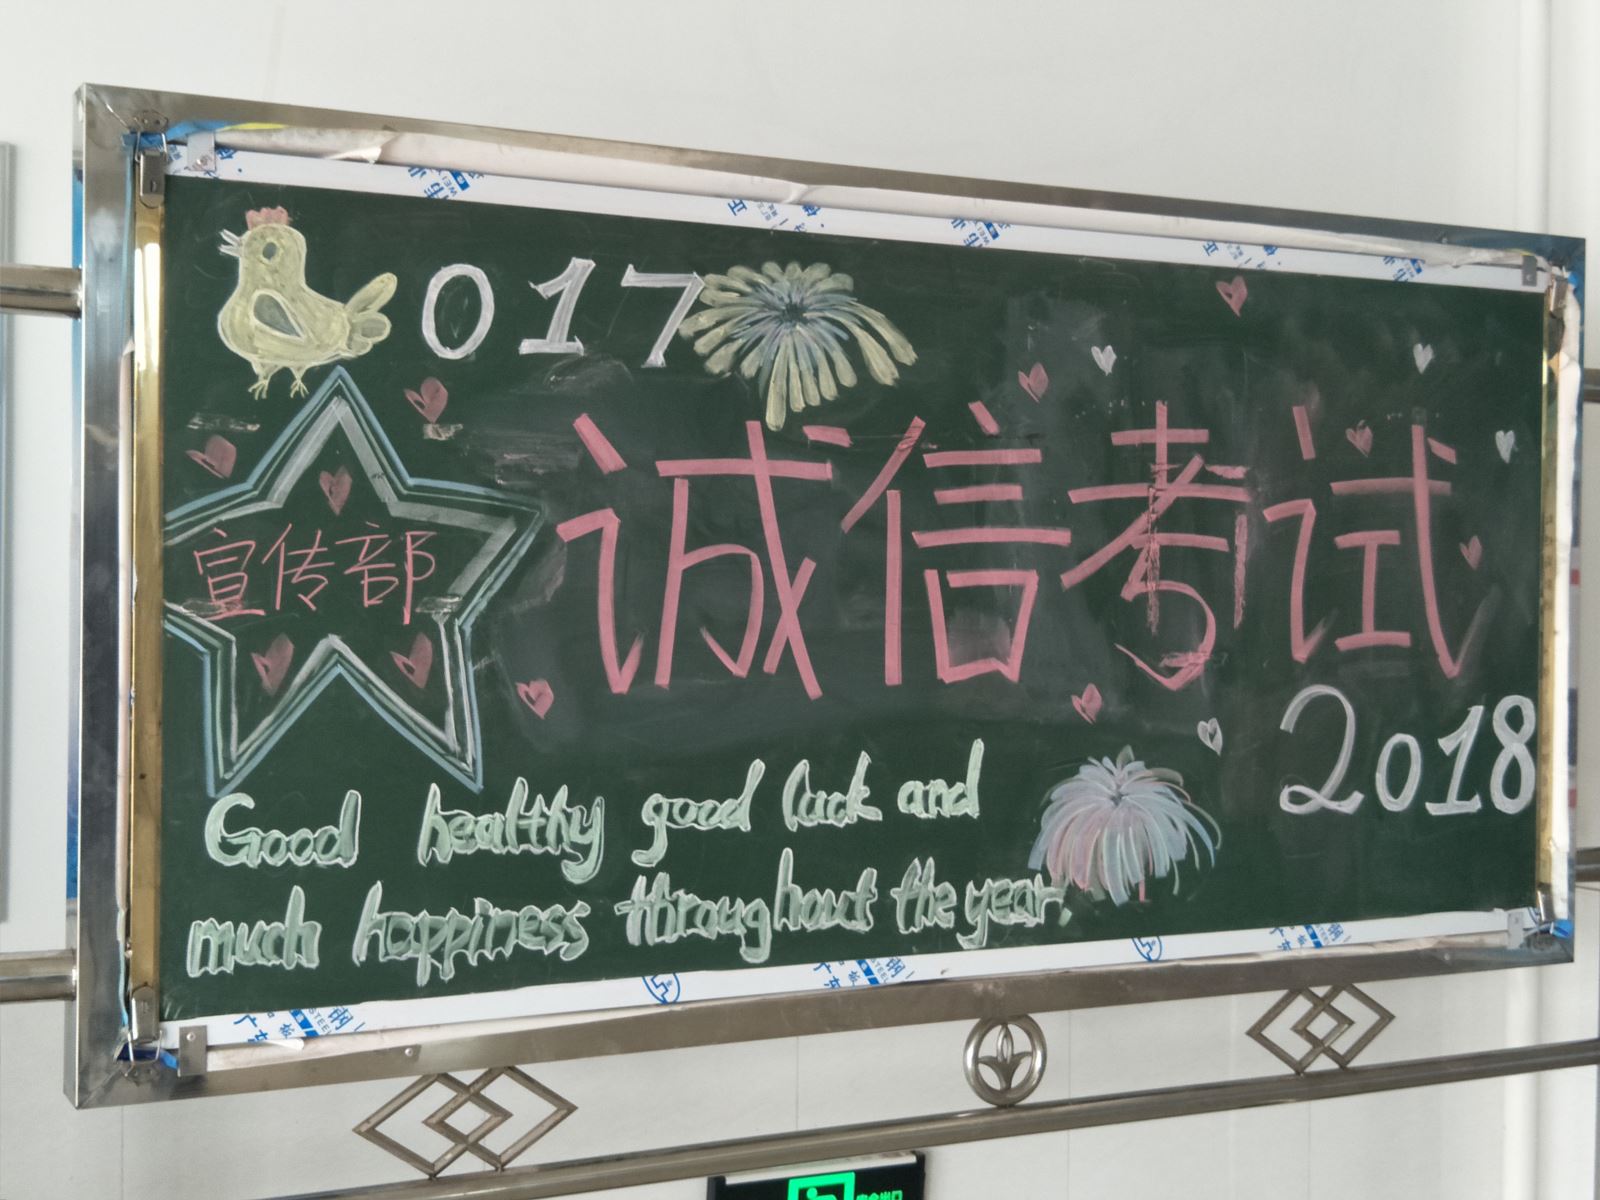 017
宣传部
诚信考试
2018
Good healthy good luck and
much happiness throughout the year.